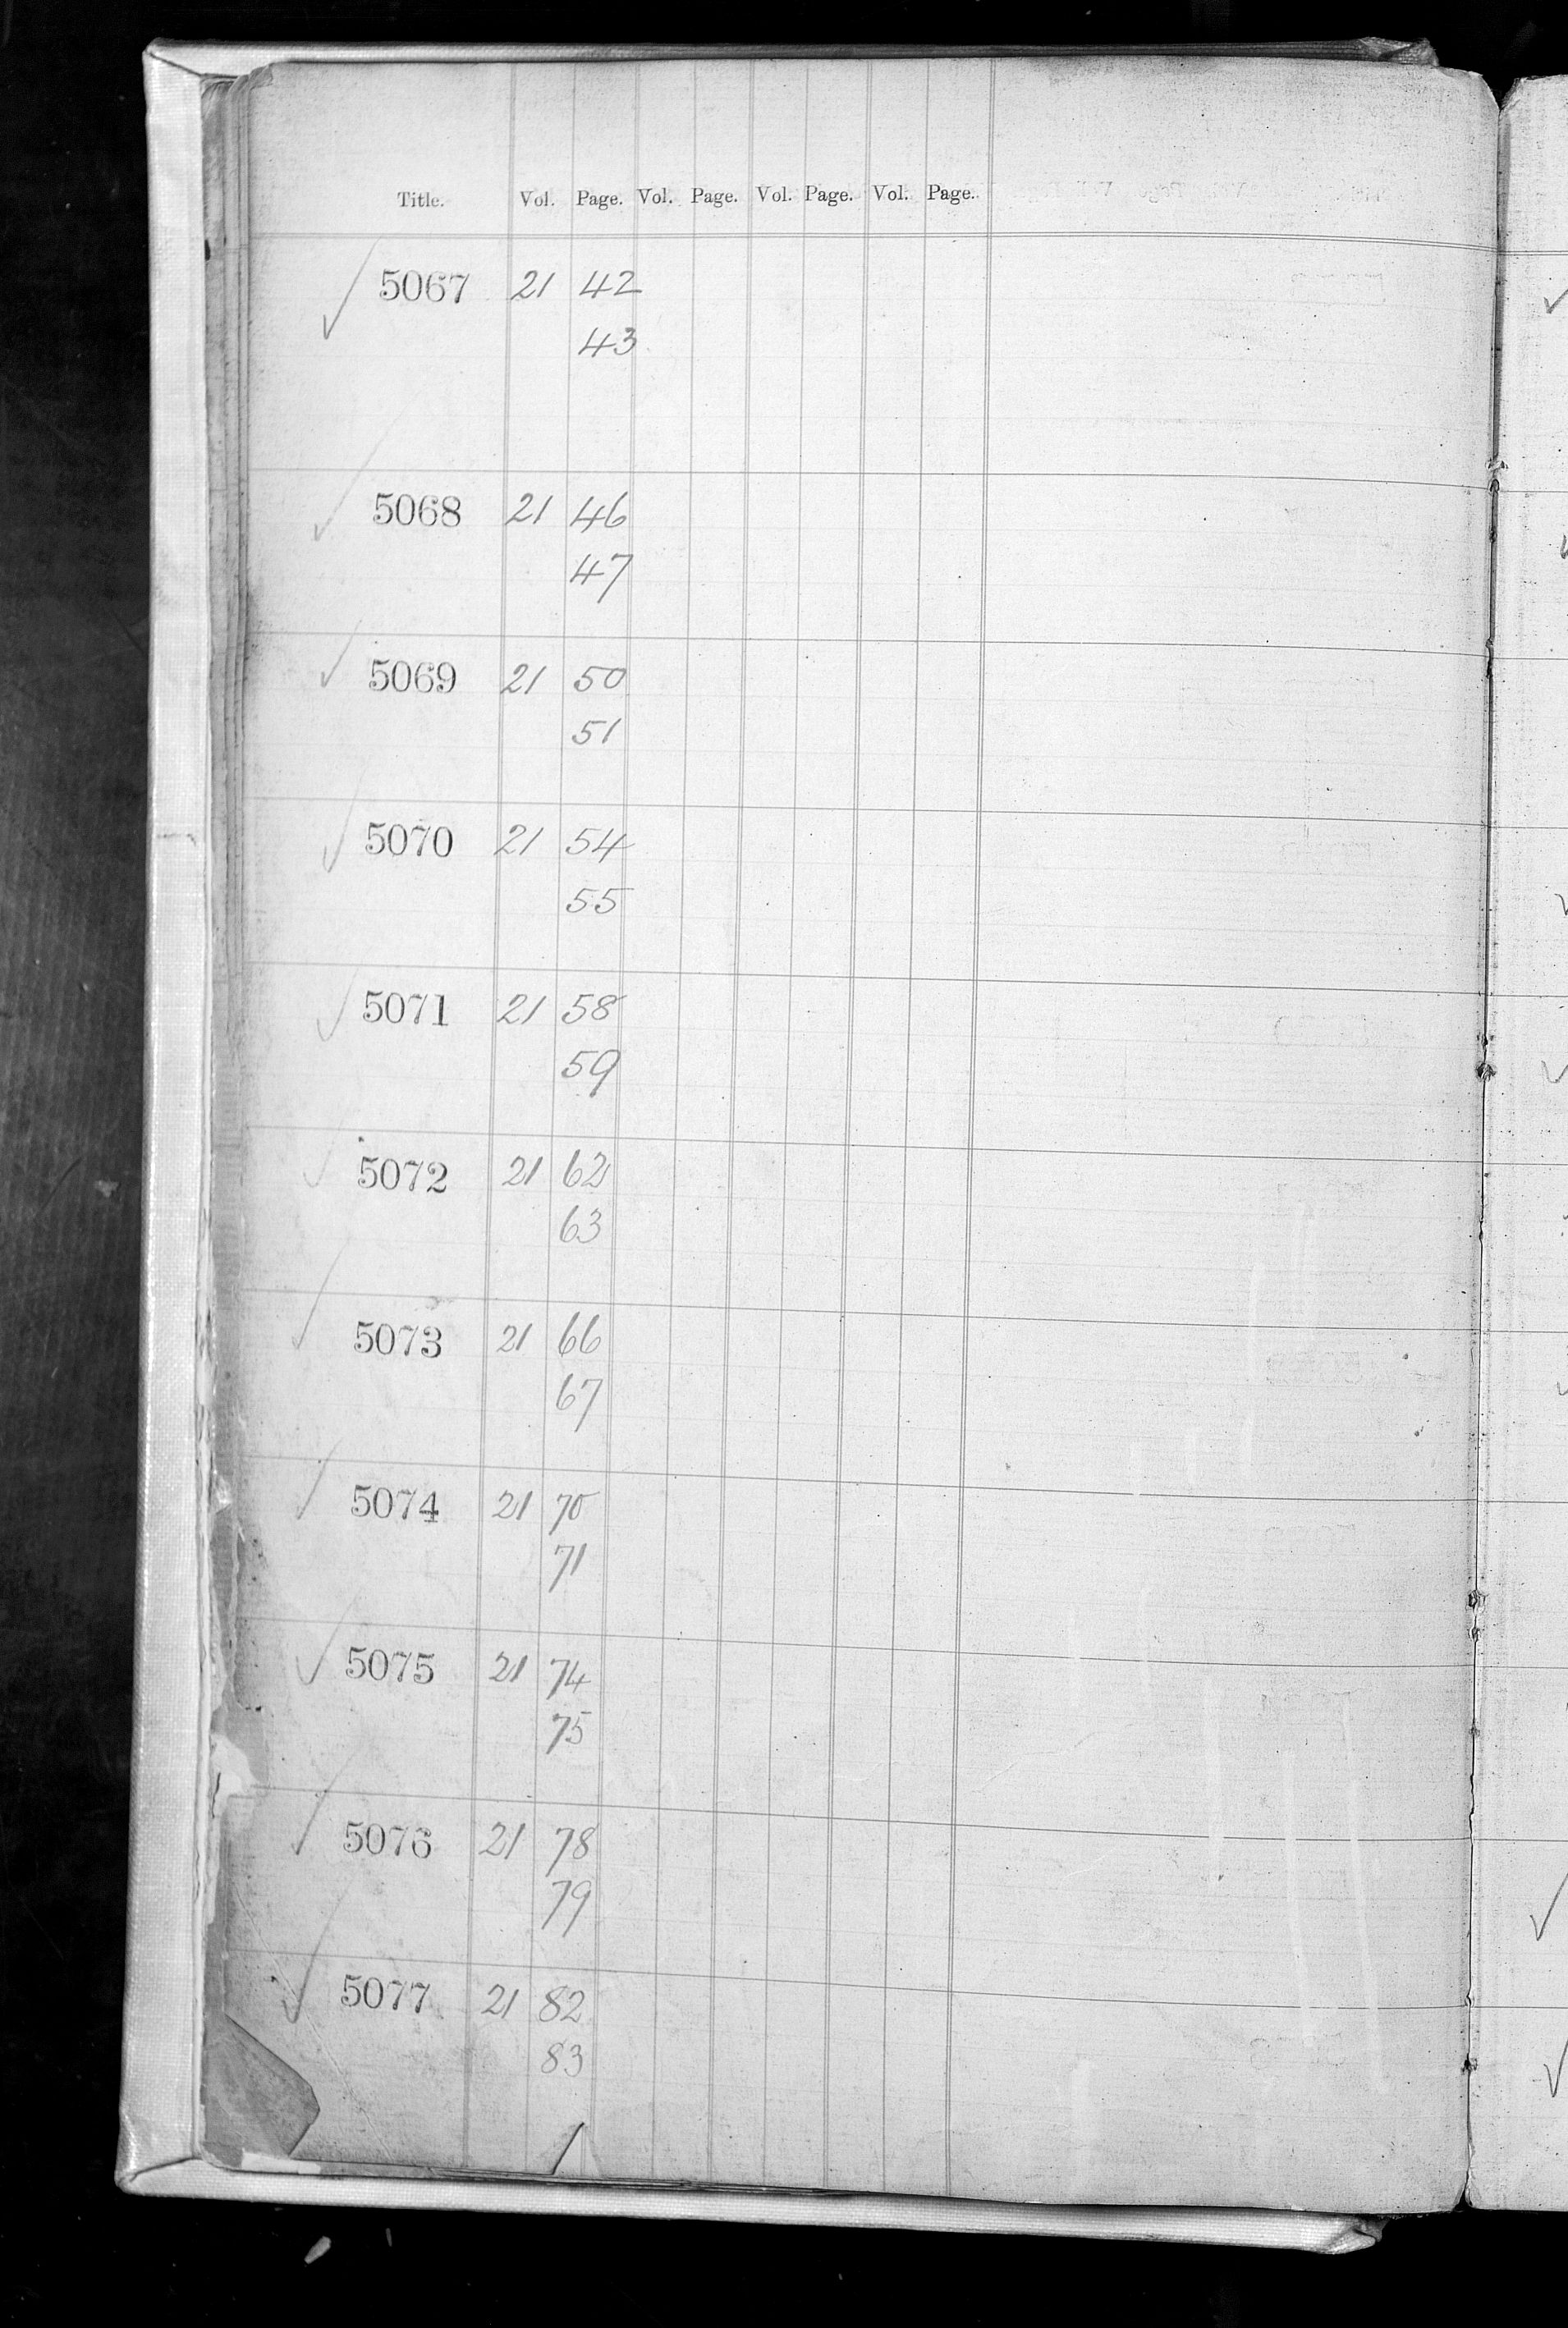 Title. Vol. Page. Vol. Page. Vol. Page. Vol. Page.
✓ 5067 21 42
43
✓ 5068 21 46
47
✓ 5069 21 50
51
✓ 5070 21 54
55
✓ 5071 21 58
59
✓ 5072 21 62
63
✓ 5073 21 66
67
✓ 5074 21 70
71
✓ 5075 21 74
75
✓ 5076 21 78
79
✓ 5077 21 82
83